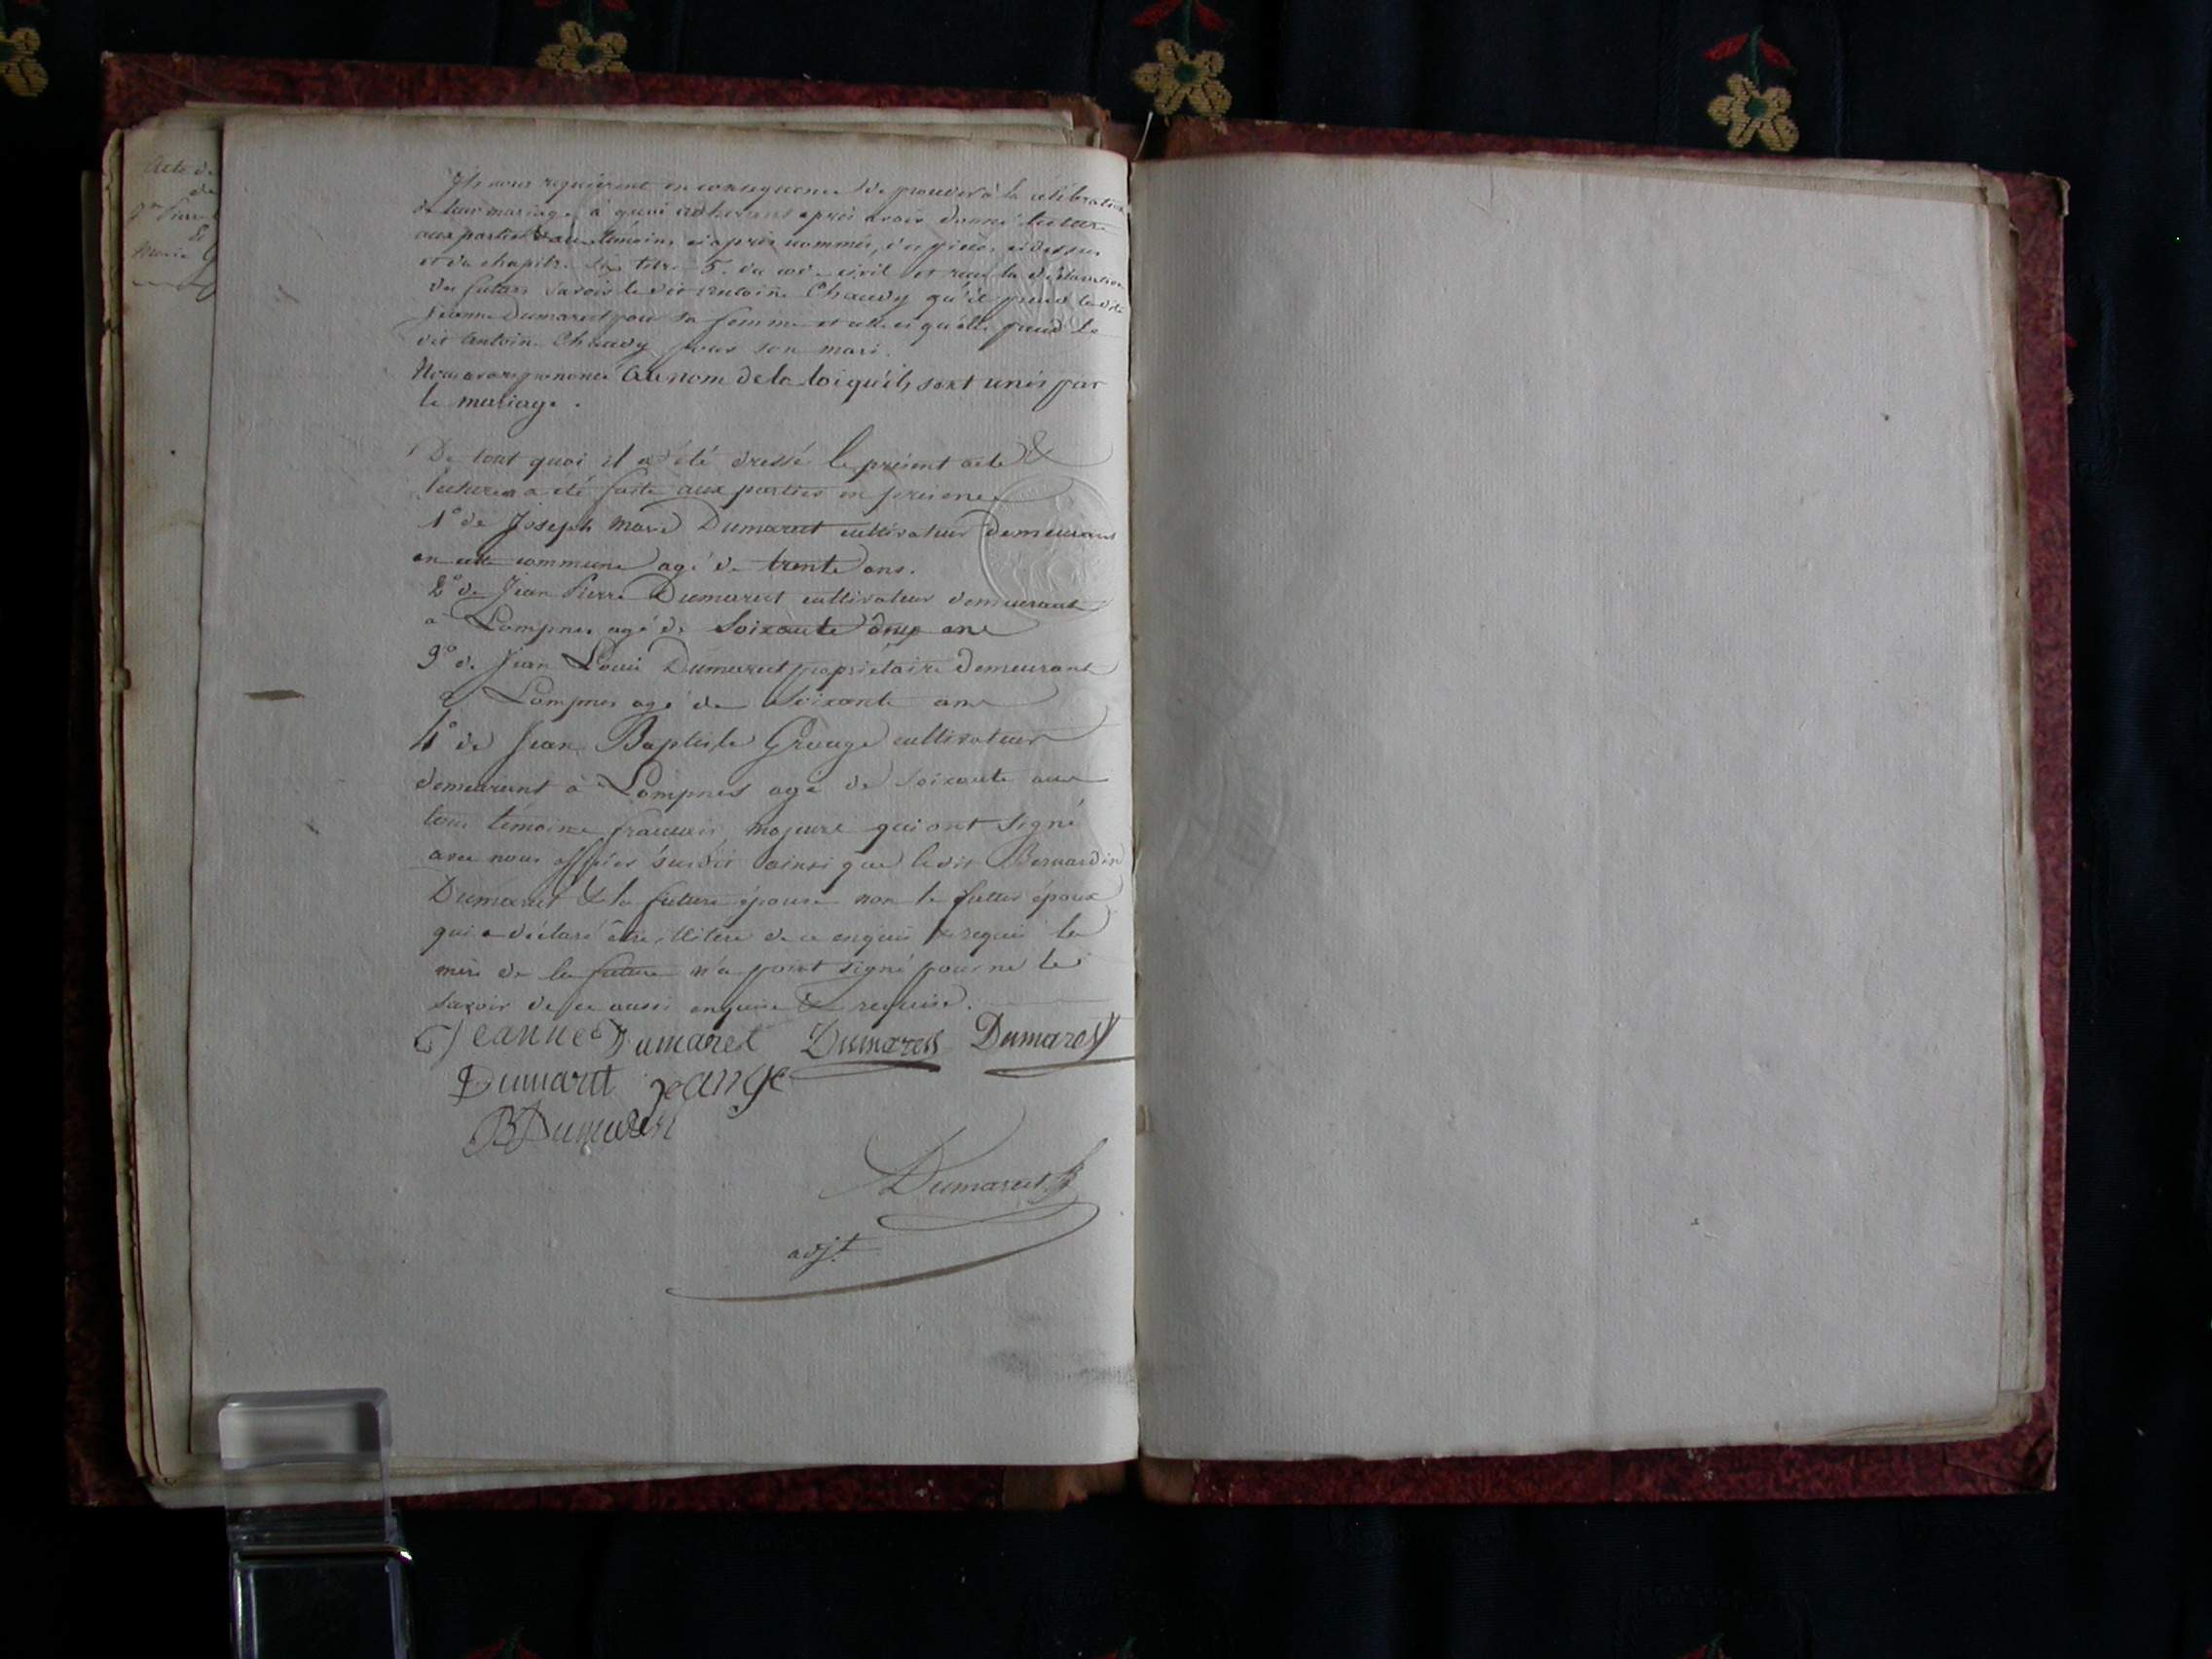 Acte de
de
Jn Pierre
&
Marie G
Ils nous requièrent en conséquence de proceder à la célébration
de leur mariage, à quoi adherant après avoir donné lecture
aux parties & aux témoins ci après nommés, des pièces ci dessus
et du chapitre six titre 5. du code civil et reçu la déclaration
des futurs savoir le dit Antoine Chauvy qu'il prend la dite
Jeanne Dumaret pour sa femme et celle ci qu'elle prend le
dit Antoine Chauvy pour son mari.
Nous avons prononcé au nom de la loi qu'ils sont unis par
le mariage.
De tout quoi il a été dressé le présent acte &
lecture a été faite aux parties en présence
1° de Joseph Marie Dumaret cultivateur demeurant
en cette commune agé de trente ans.
2° de Jean Pierre Dumaret cultivateur demeurant
à Lompnes agé de soixante ans
3° de Jean Louis Dumaret propriétaire demeurant
à Lompnes agé de soixante ans
4° de Jean Baptiste Grange cultivateur
demeurant à Lompnes agé de soixante ans
tous témoins français majeurs qui ont signé
avec nous officier susdit ainsi que le dit Bernardin
Dumaret & la future épouse non le futur époux
qui a déclaré être illitéré de ce enquis & requis la
mère de la future n'a point signé pour ne le
savoir de ce aussi enquise & requise.
Jeanne Dumaret Dumaret Dumaret
Dumaret grange
B Dumaret
Dumaret
adjt.